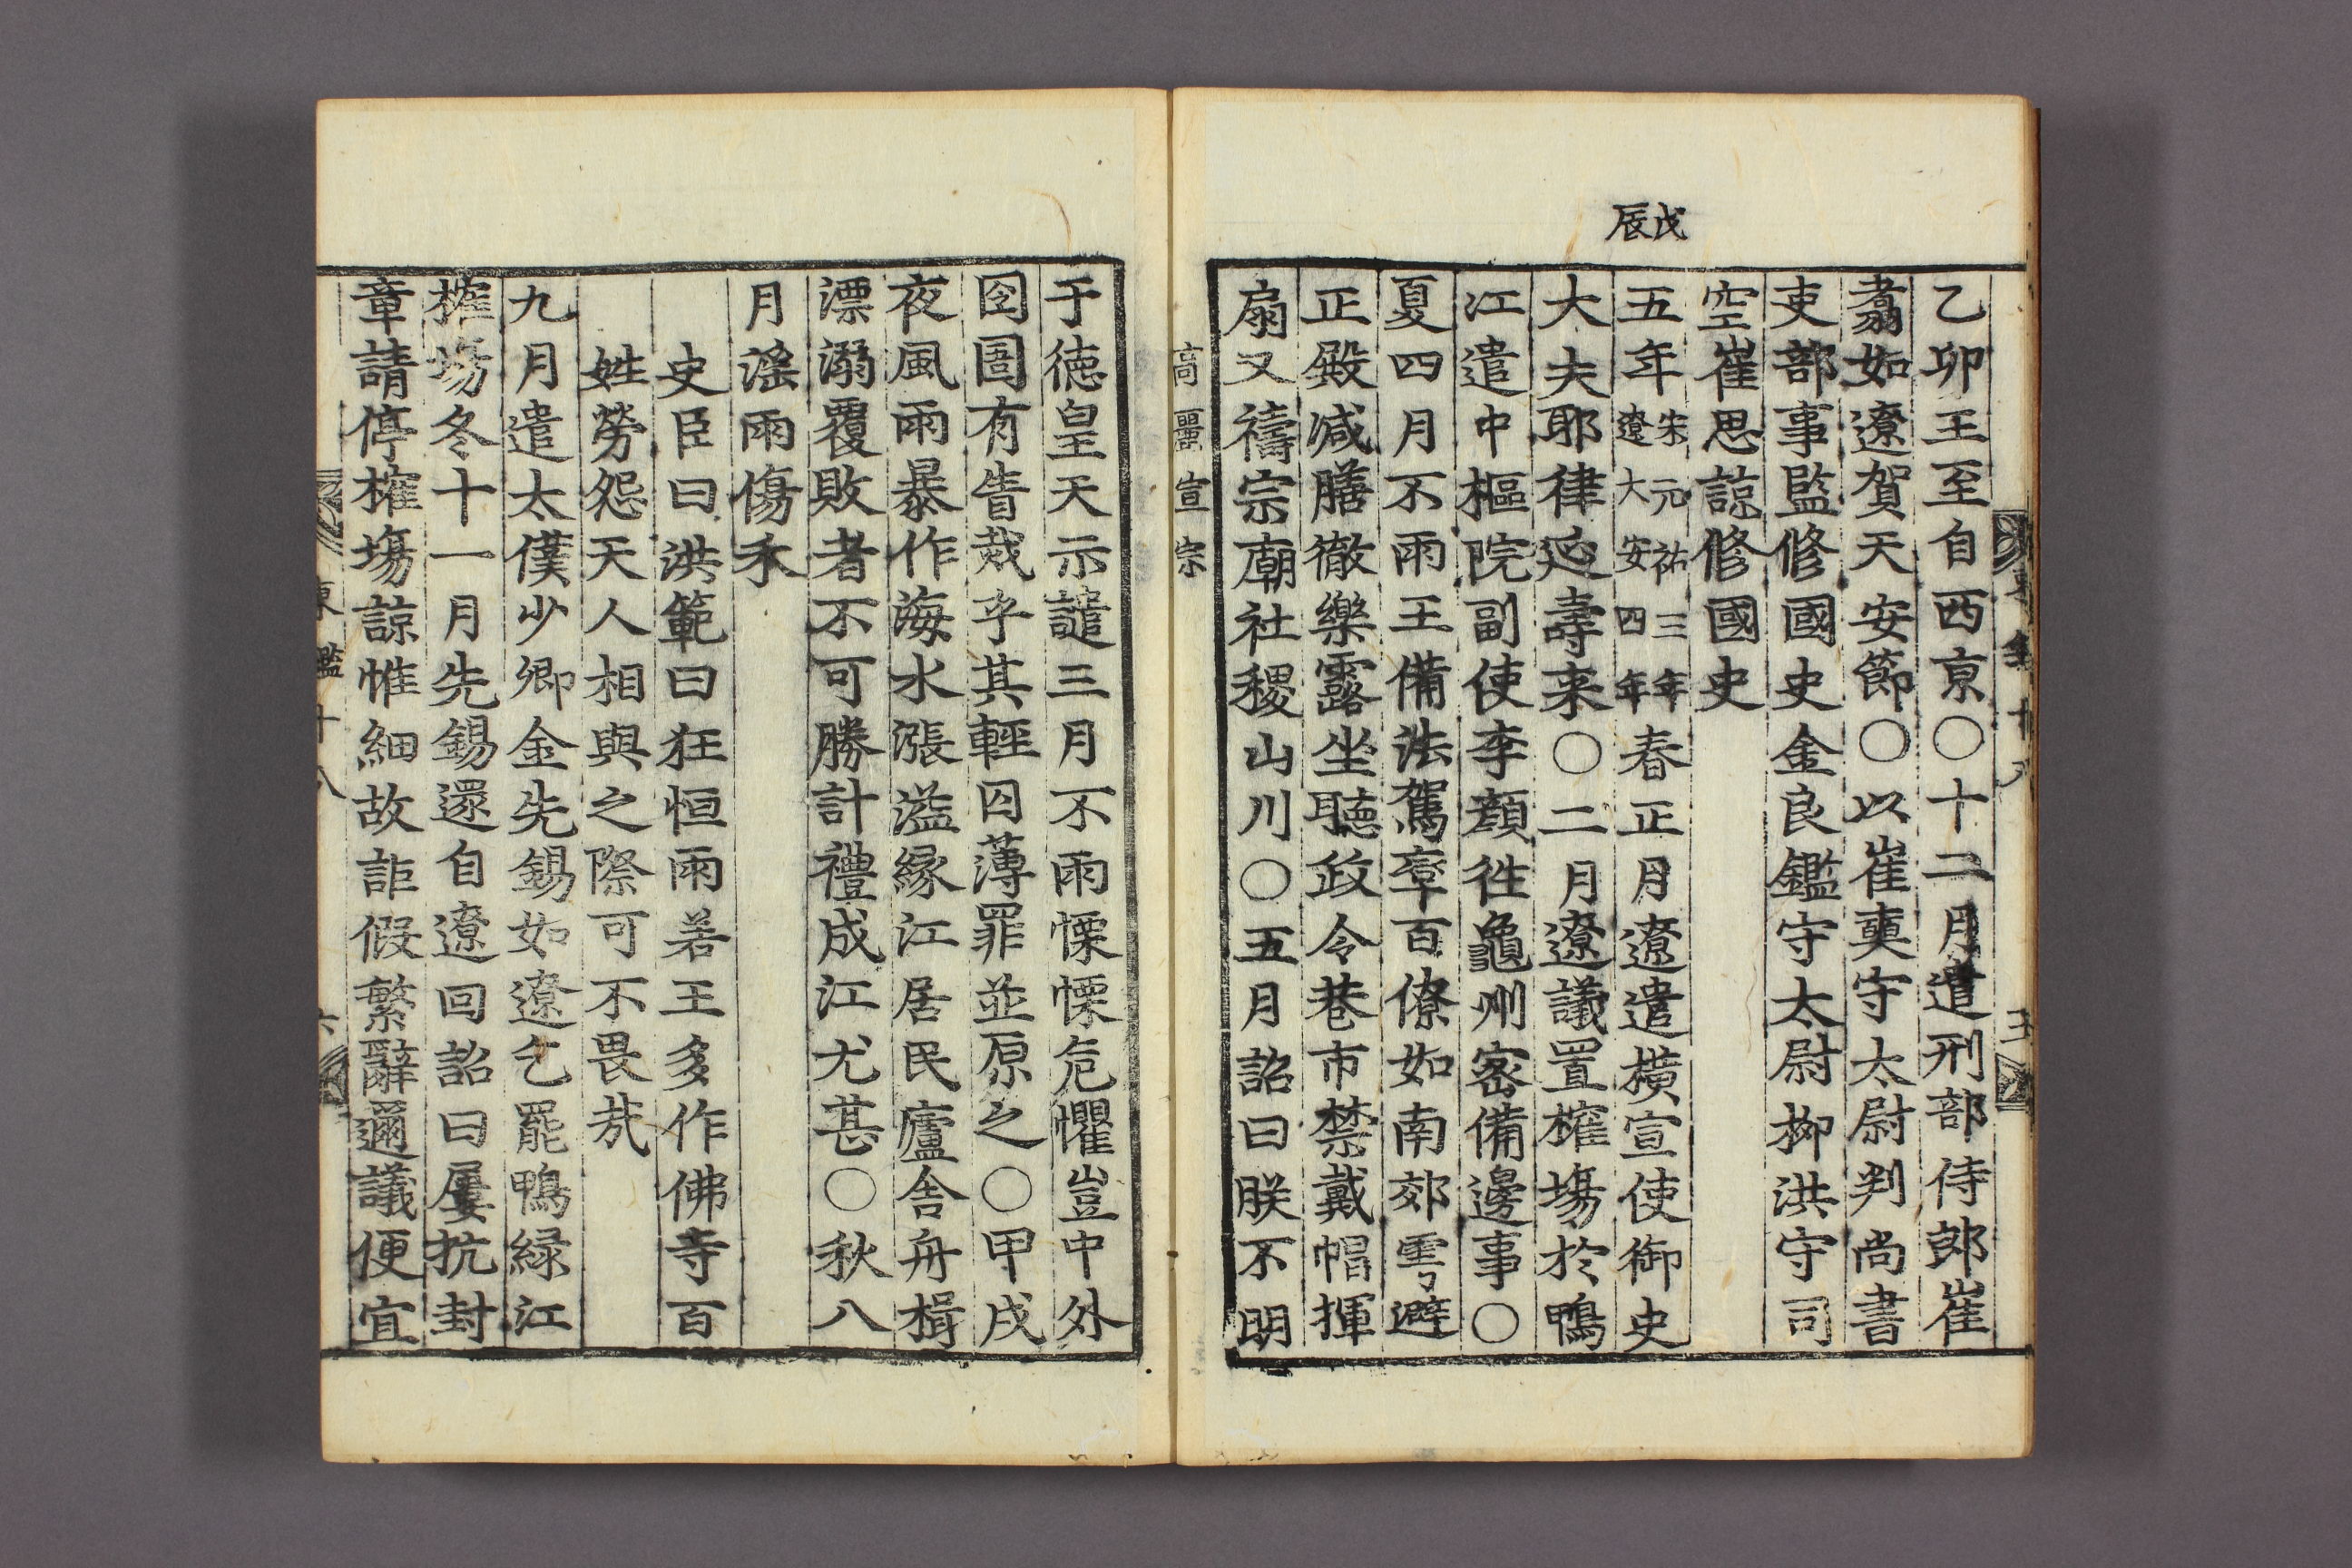 戊辰
乙卯王至自西京○十二月遣刑部侍郎崔
翥如遼賀天安節○以崔奭守太尉判尚書
吏部事監修國史金良鑑守太尉柳洪守司
空崔思諒修國史
五年宋元祐三年遼大安四年春正月遼遣横宣使御史
大夫耶律延壽来○二月遼議置榷場於鴨
江遣中樞院副使李顔徃龜州密備邊事○
夏四月不雨王備法駕率百僚如南郊雩避
正殿减膳徹樂露坐聽政令巷市禁戴帽揮
扇又禱宗廟社稷山川○五月詔曰朕不明
高麗宣宗
于徳皇天示譴三月不雨慄慄危懼豈中外
囹圄有眚烖乎其輕囚薄罪並原之○甲戌
夜風雨暴作海水漲溢緣江居民廬舍舟楫
漂溺覆敗者不可勝計禮成江尤甚○秋八
月滛雨傷禾
史臣曰洪範曰狂恒雨若王多作佛寺百
姓勞怨天人相與之際可不畏㢤
九月遣太僕少卿金先錫如遼乞罷鴨緑江
榷場冬十一月先錫還自遼回詔曰屢抗封
章請停榷場諒惟細故詎假繁辭邇議便宜
東鑑十八
六